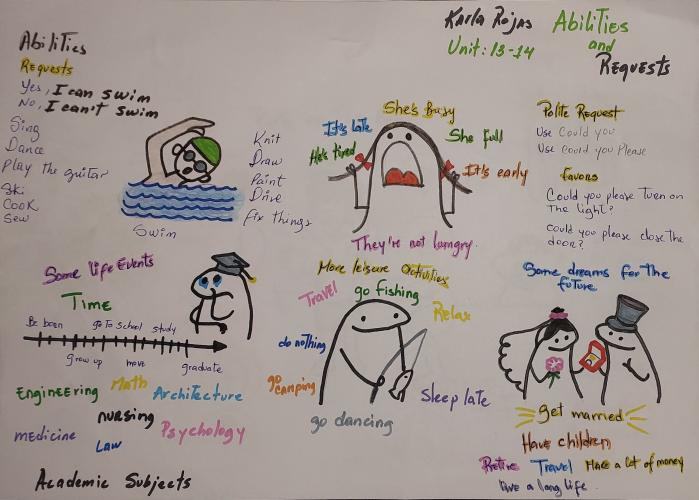 Karla Rojas
Unit: 13-14
Abilities
and
Requests
Abilities
Requests
Yes, I can swim
No, I can't swim
Sing
Dance
Play the guitar
Ski
Cook
Sew
Swim
Knit
Draw
Paint
Drive
Fix things
She's Busy
It's late
She full
He's tired
It's early
They're not hungry.
Polite Request
Use Could you
Use Could you Please
Favors
Could you please turn on
the light?
Could you please close the
door?
Some life Events
Time
Be born
go To School
study
grow up
move
graduate
Engineering
Math
Architecture
nursing
medicine
Law
Psychology
Academic Subjects
More leisure Activities
Travel
go fishing
Relax
do nothing
go
camping
Sleep late
go dancing
Some dreams for the
future
get married
Have children
Retire
Travel
Make a lot of money
Live a long life.